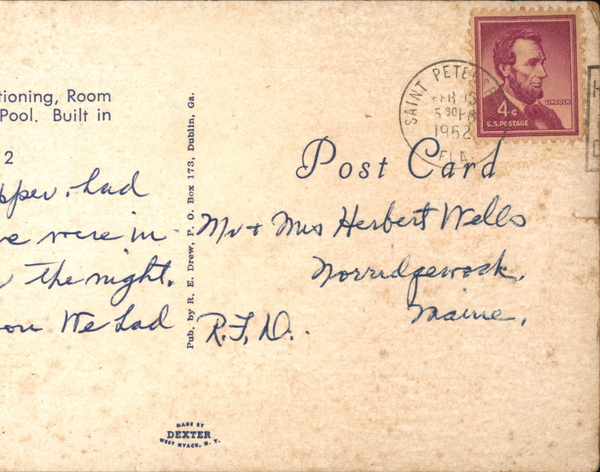 tioning, Room
Pool. Built in
2
pper. had
we were in
the night.
on We had
Pub. by R. E. Drew, P. O. Box 173, Dublin, Ga.
SAINT PETERS
FEB 13
5 30 PM
1962
FLA.
4¢
LINCOLN
U.S. POSTAGE
Post Card
Mr + Mrs Herbert Wells
Norridgewock,
Maine,
R.F.D..
MADE BY
DEXTER
WEST NYACK, N. Y.